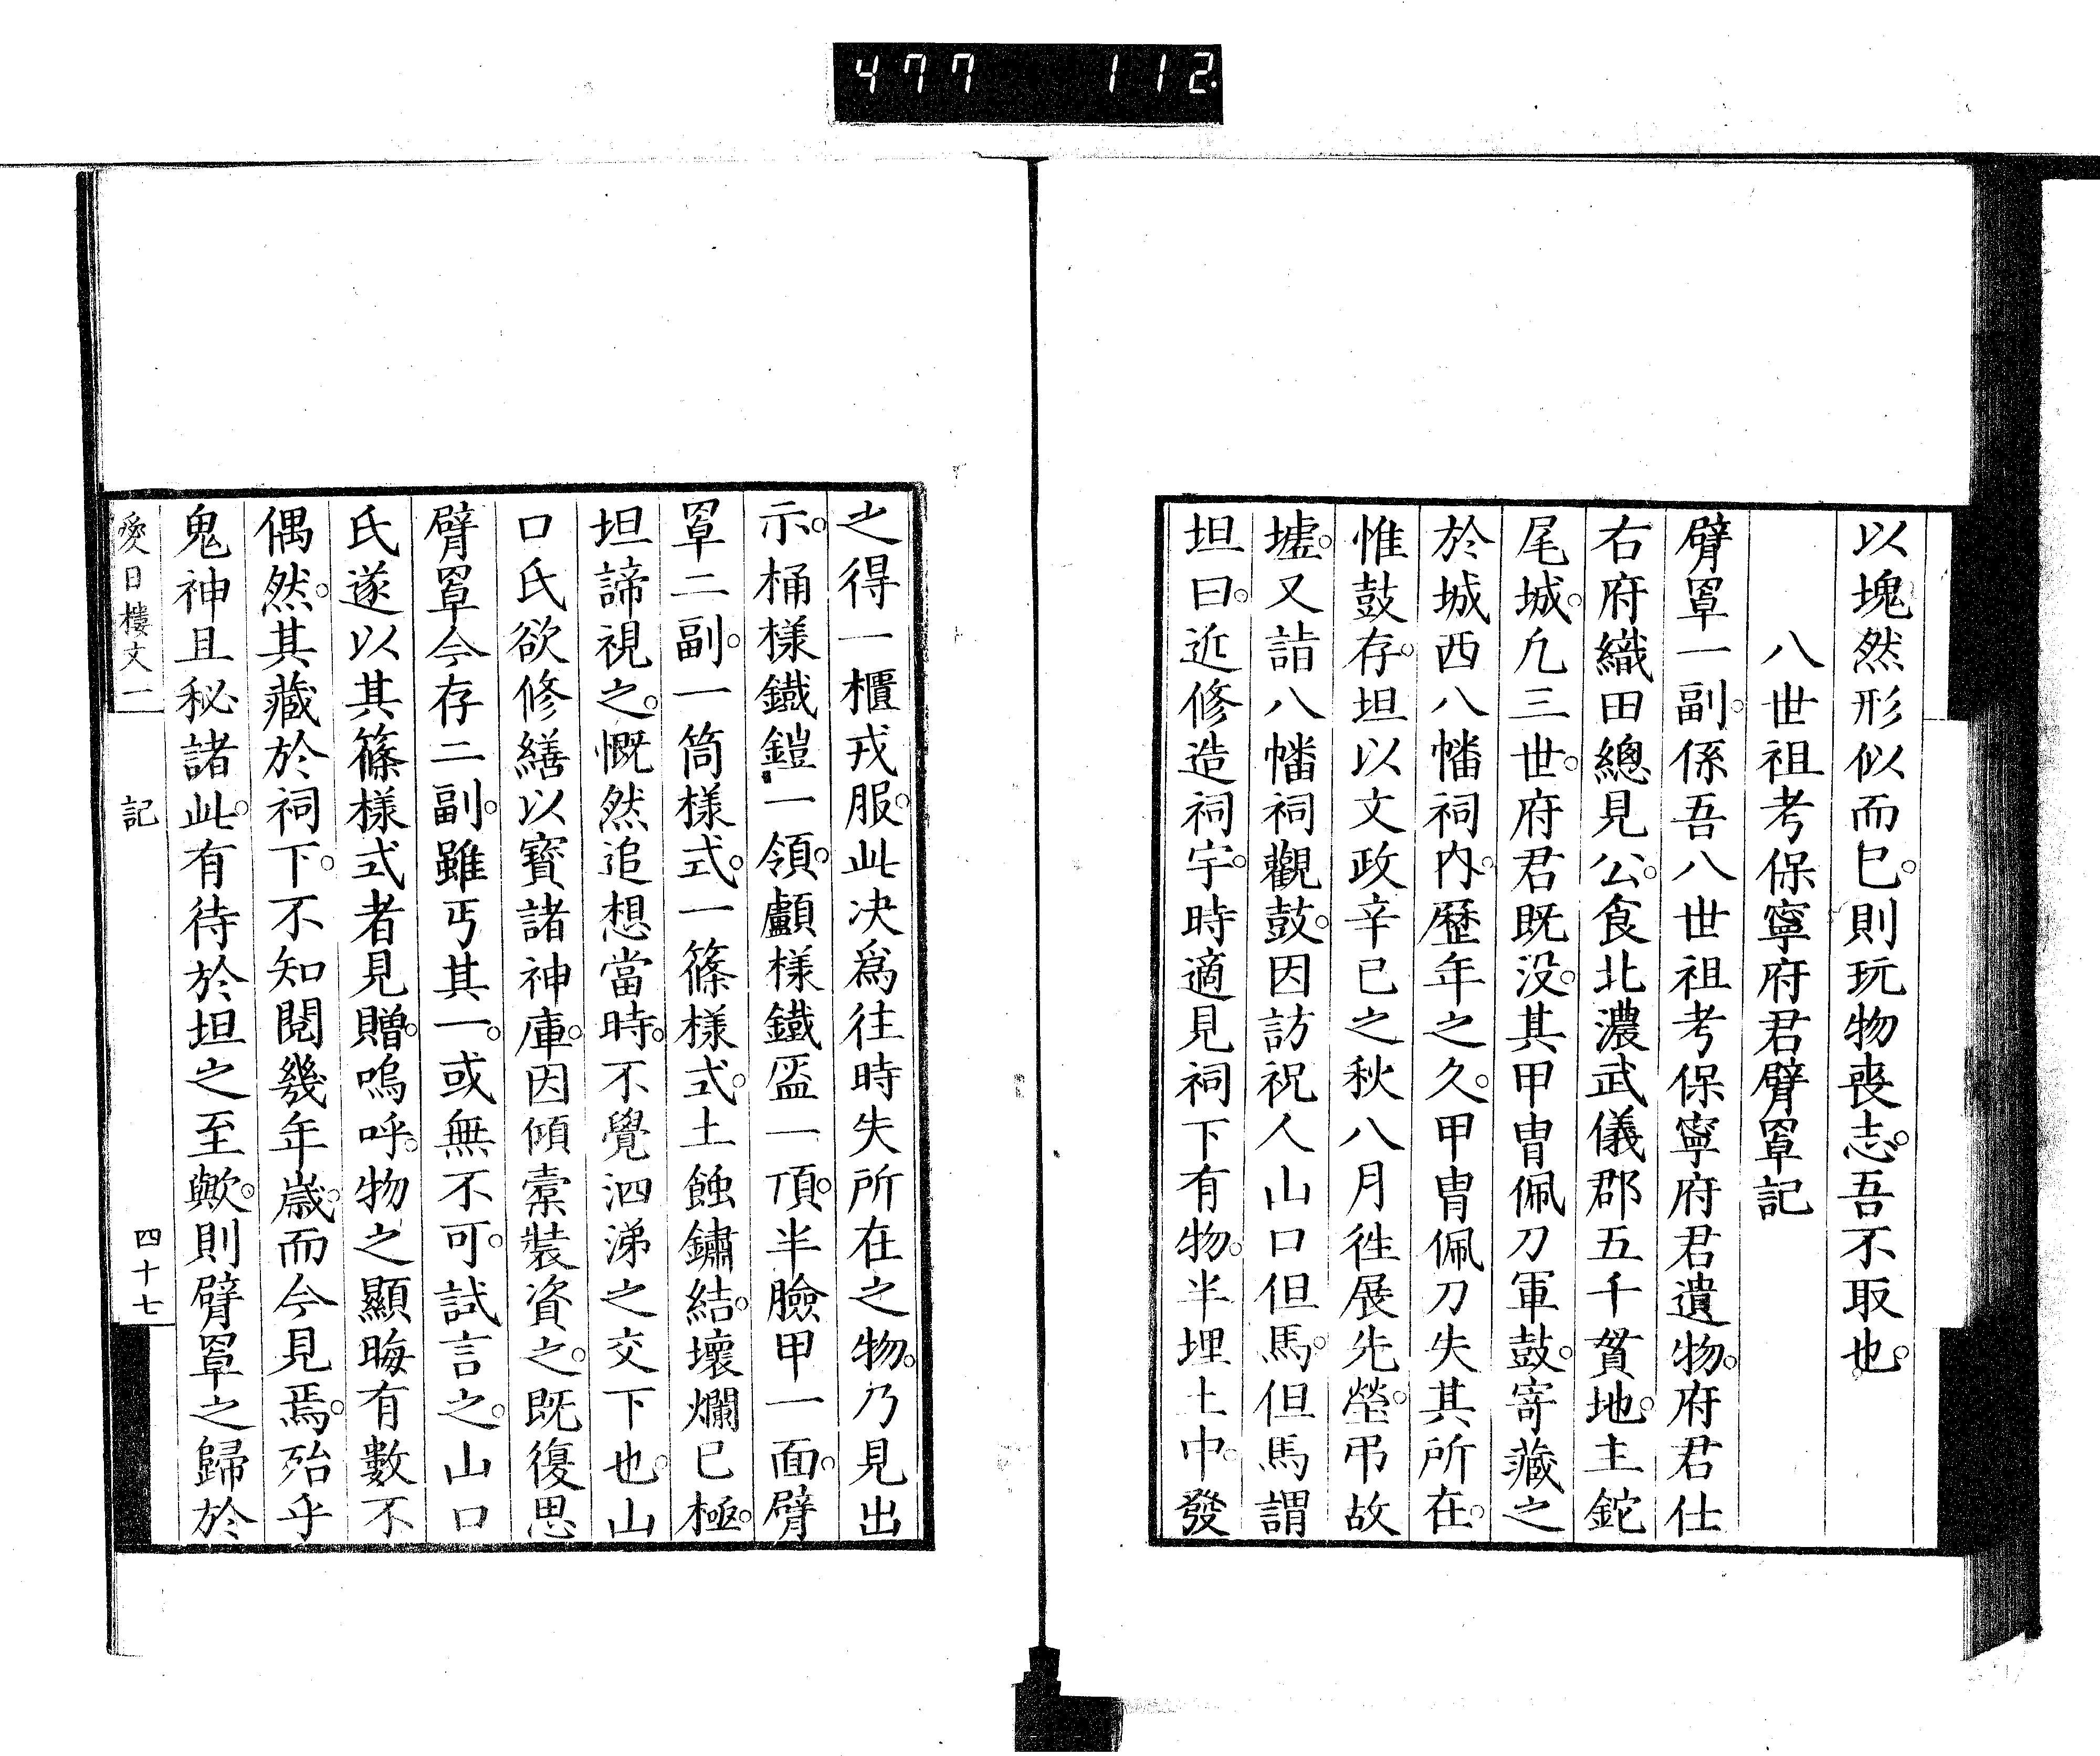 477 112.
以塊然形似而已。則玩物喪志。吾不取也。
八世祖考保寧府君臂罩記
臂罩一副。係吾八世祖考保寧府君遺物。府君仕
右府織田總見公。食北濃武儀郡五千貫地。主鉈
尾城。凢三世。府君既没。其甲冑佩刀軍鼓。寄藏之
於城西八幡祠內。歷年之久。甲冑佩刀失其所在。
惟鼓存。坦以文政辛巳之秋八月徃展先塋。弔故
墟。又詣八幡祠觀鼓。因訪祝人山口但馬。但馬謂
坦曰。近修造祠宇。時適見祠下有物。半埋土中。發
之得一櫃戎服。此决爲往時失所在之物。乃見出
示。桶樣鐵鎧一領。顱樣鐵盔一頂。半臉甲一面。臂
罩二副。一筒樣式。一篠樣式。土蝕鏽結。壞爛已極。
坦諦視之。慨然追想當時。不覺泗涕之交下也。山
口氏欲修繕以寳諸神庫。因傾橐裝資之。既復思
臂罩今存二副。雖丐其一。或無不可。試言之。山口
氏遂以其篠樣式者見贈。嗚呼。物之顯晦有數不
偶然。其藏於祠下。不知閱幾年歲。而今見焉。殆乎
鬼神且秘諸此。有待於坦之至歟。則臂罩之歸於
愛日樓文二 記 四十七